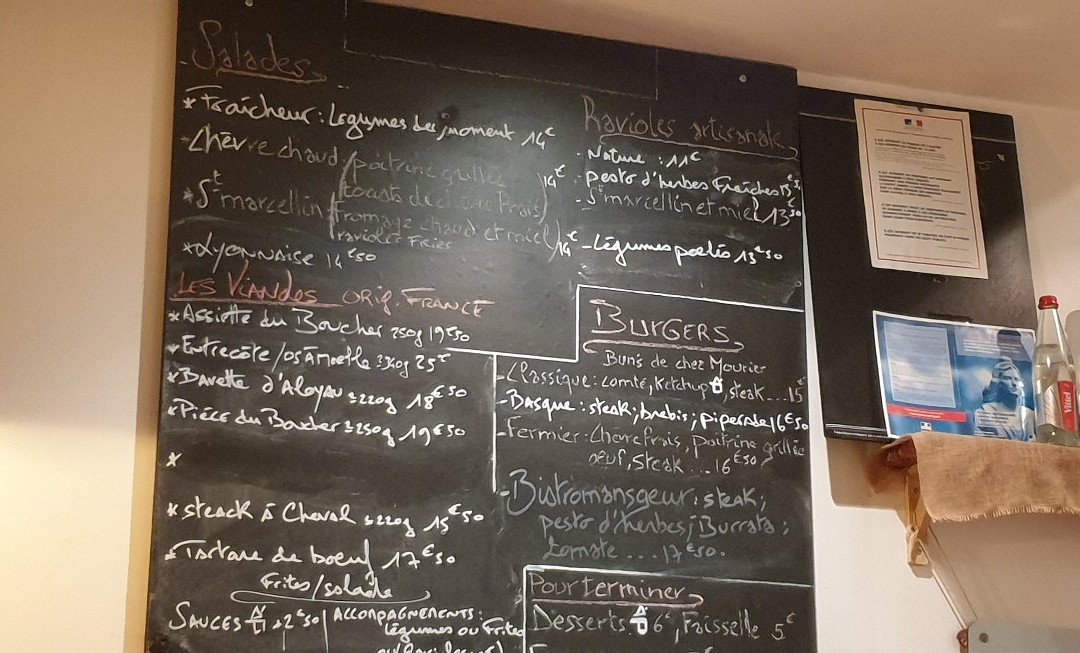 Salades
* Fraîcheur: Légumes du moment 14€
- Chèvre chaud (poitrine grillée
toasts de chèvre Frais) 14€
* St marcellin (fromage chaud et miel
ravioles Frites) 14€
* Lyonnaise 14€50
LES VIANDES ORIG. FRANCE
* Assiette du Boucher 250g 19€50
* Entrecôte/os à moelle 25€
* Bavette d'Aloyau ±220g 18€50
* Pièce du Boucher ±250g 19€50
*
* steack à Cheval ±220g 15€50
* Tartare de boeuf 17€50
Frites/salade
SAUCES +2€50
ACCOMPAGNEMENTS:
légumes ou Frites
Ravioles artisanale
- Nature : 11€
- pesto d'herbes Fraîches
- St marcellin et miel 13€50
- Légumes poêlés 13€50
BURGERS
Bun's de chez Mourier
- Classique: comté, ketchup, steak...15€
- Basque: steak; brebis; piperade 16€50
- Fermier: Chèvre frais, poitrine grillée
oeuf, steak...16€50
- Bistromangeur: steak;
pesto d'herbes; Burrata;
tomate...17€50.
Pour terminer
Desserts 6€, Faisselle 5€
Vittel